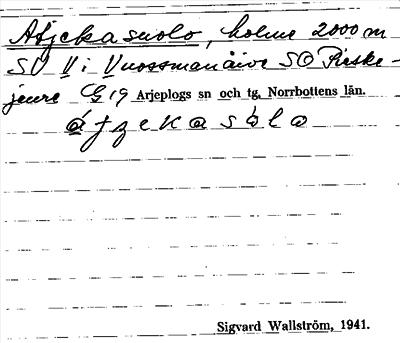 Atjekasuolo, holme 2000 m
SV V i Vuossmanäive SO Rieske-
jaure G 19 Arjeplogs sn och tg, Norrbottens län.
Sigvard Wallström, 1941.